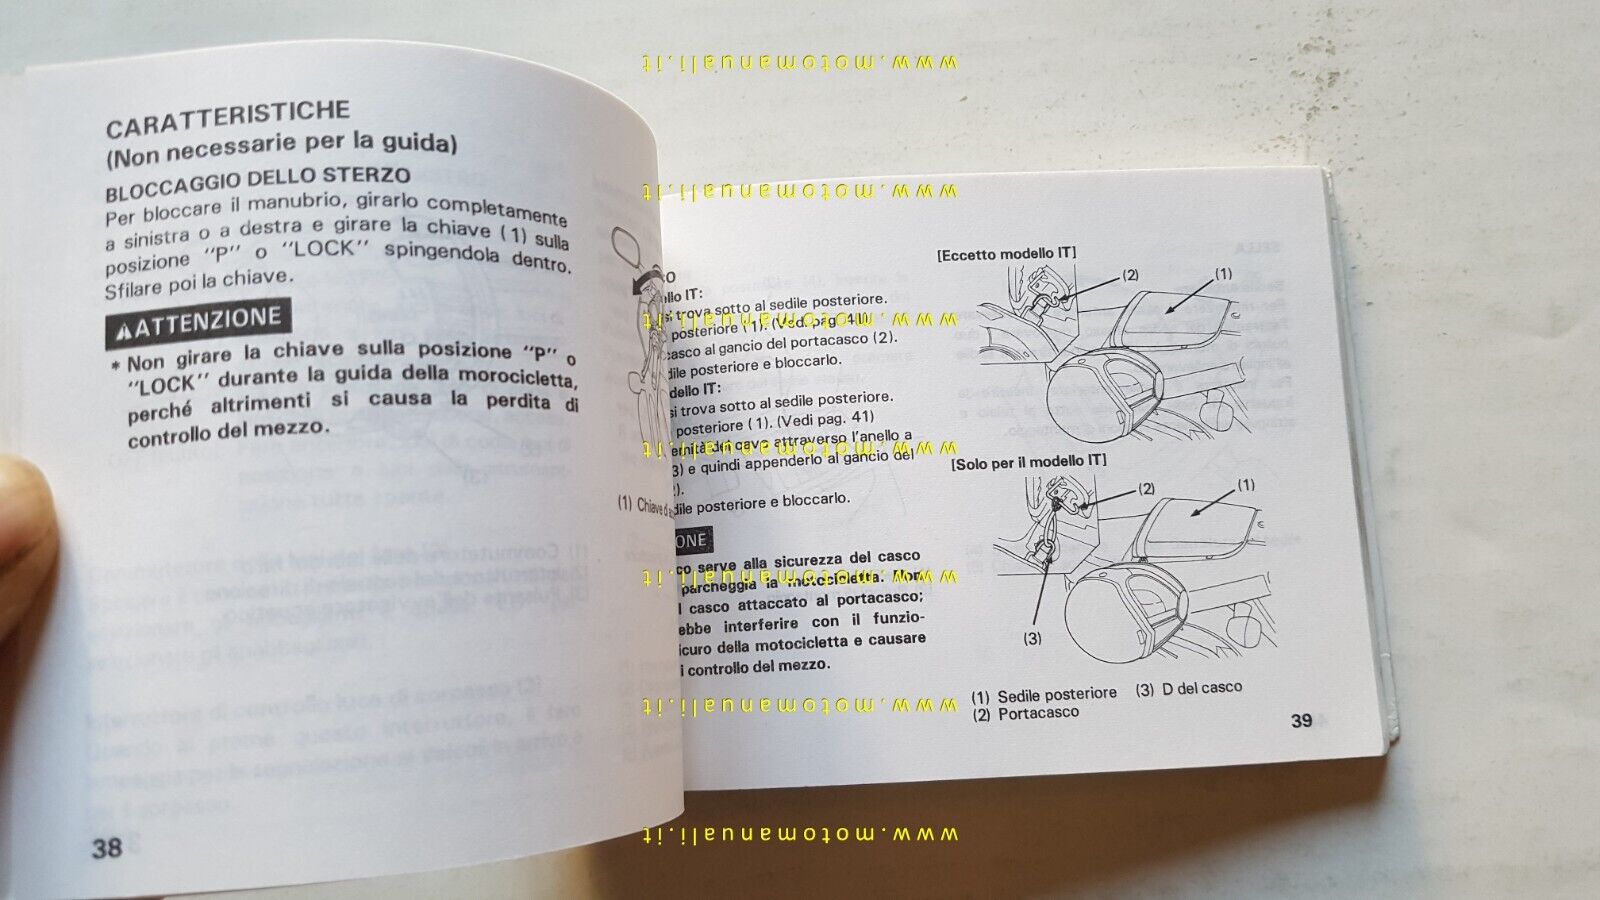 CARATTERISTICHE
(Non necessarie per la guida)
BLOCCAGGIO DELLO STERZO
Per bloccare il manubrio, girarlo completamente
a sinistra o a destra e girare la chiave (1) sulla
posizione "P" o "LOCK" spingendola dentro.
Sfilare poi la chiave.
ATTENZIONE
* Non girare la chiave sulla posizione "P" o
"LOCK" durante la guida della morocicletta,
perché altrimenti si causa la perdita di
controllo del mezzo.
(1) Chiave d
38
IT:
si trova sotto al sedile posteriore.
posteriore (1). (Vedi pag. 40)
casco al gancio del portacasco (2).
posteriore e bloccarlo.
IT:
si trova sotto al sedile posteriore.
posteriore (1). (Vedi pag. 41)
del cavo attraverso l'anello a
3) e quindi appenderlo al gancio del
posteriore e bloccarlo.
serve alla sicurezza del casco
parcheggia la motocicletta. Non
casco attaccato al portacasco;
interferire con il funzio-
della motocicletta e causare
controllo del mezzo.
[Eccetto modello IT]
(2)
(1)
[Solo per il modello IT]
(2)
(1)
(3)
(1) Sedile posteriore (3) D del casco
(2) Portacasco
39
www.motomanuali.it
www.motomanuali.it
www.motomanuali.it
www.motomanuali.it
www.motomanuali.it
www.motomanuali.it
www.motomanuali.it